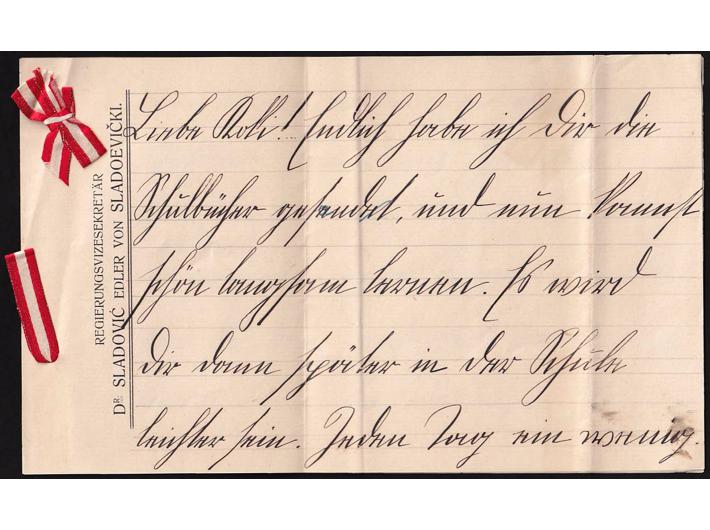 REGIERUNGSVIZESEKRETÄR
DR. SLADOVIĆ EDLER VON SLADOEVIČKI.
Liebe Koli! Endlich habe ich Dir die
Schulbücher gesendet, und nun kannst
schön langsam lernen. Es wird
Dir dann später in der Schule
leichter sein. Jeden Tag ein wenig.